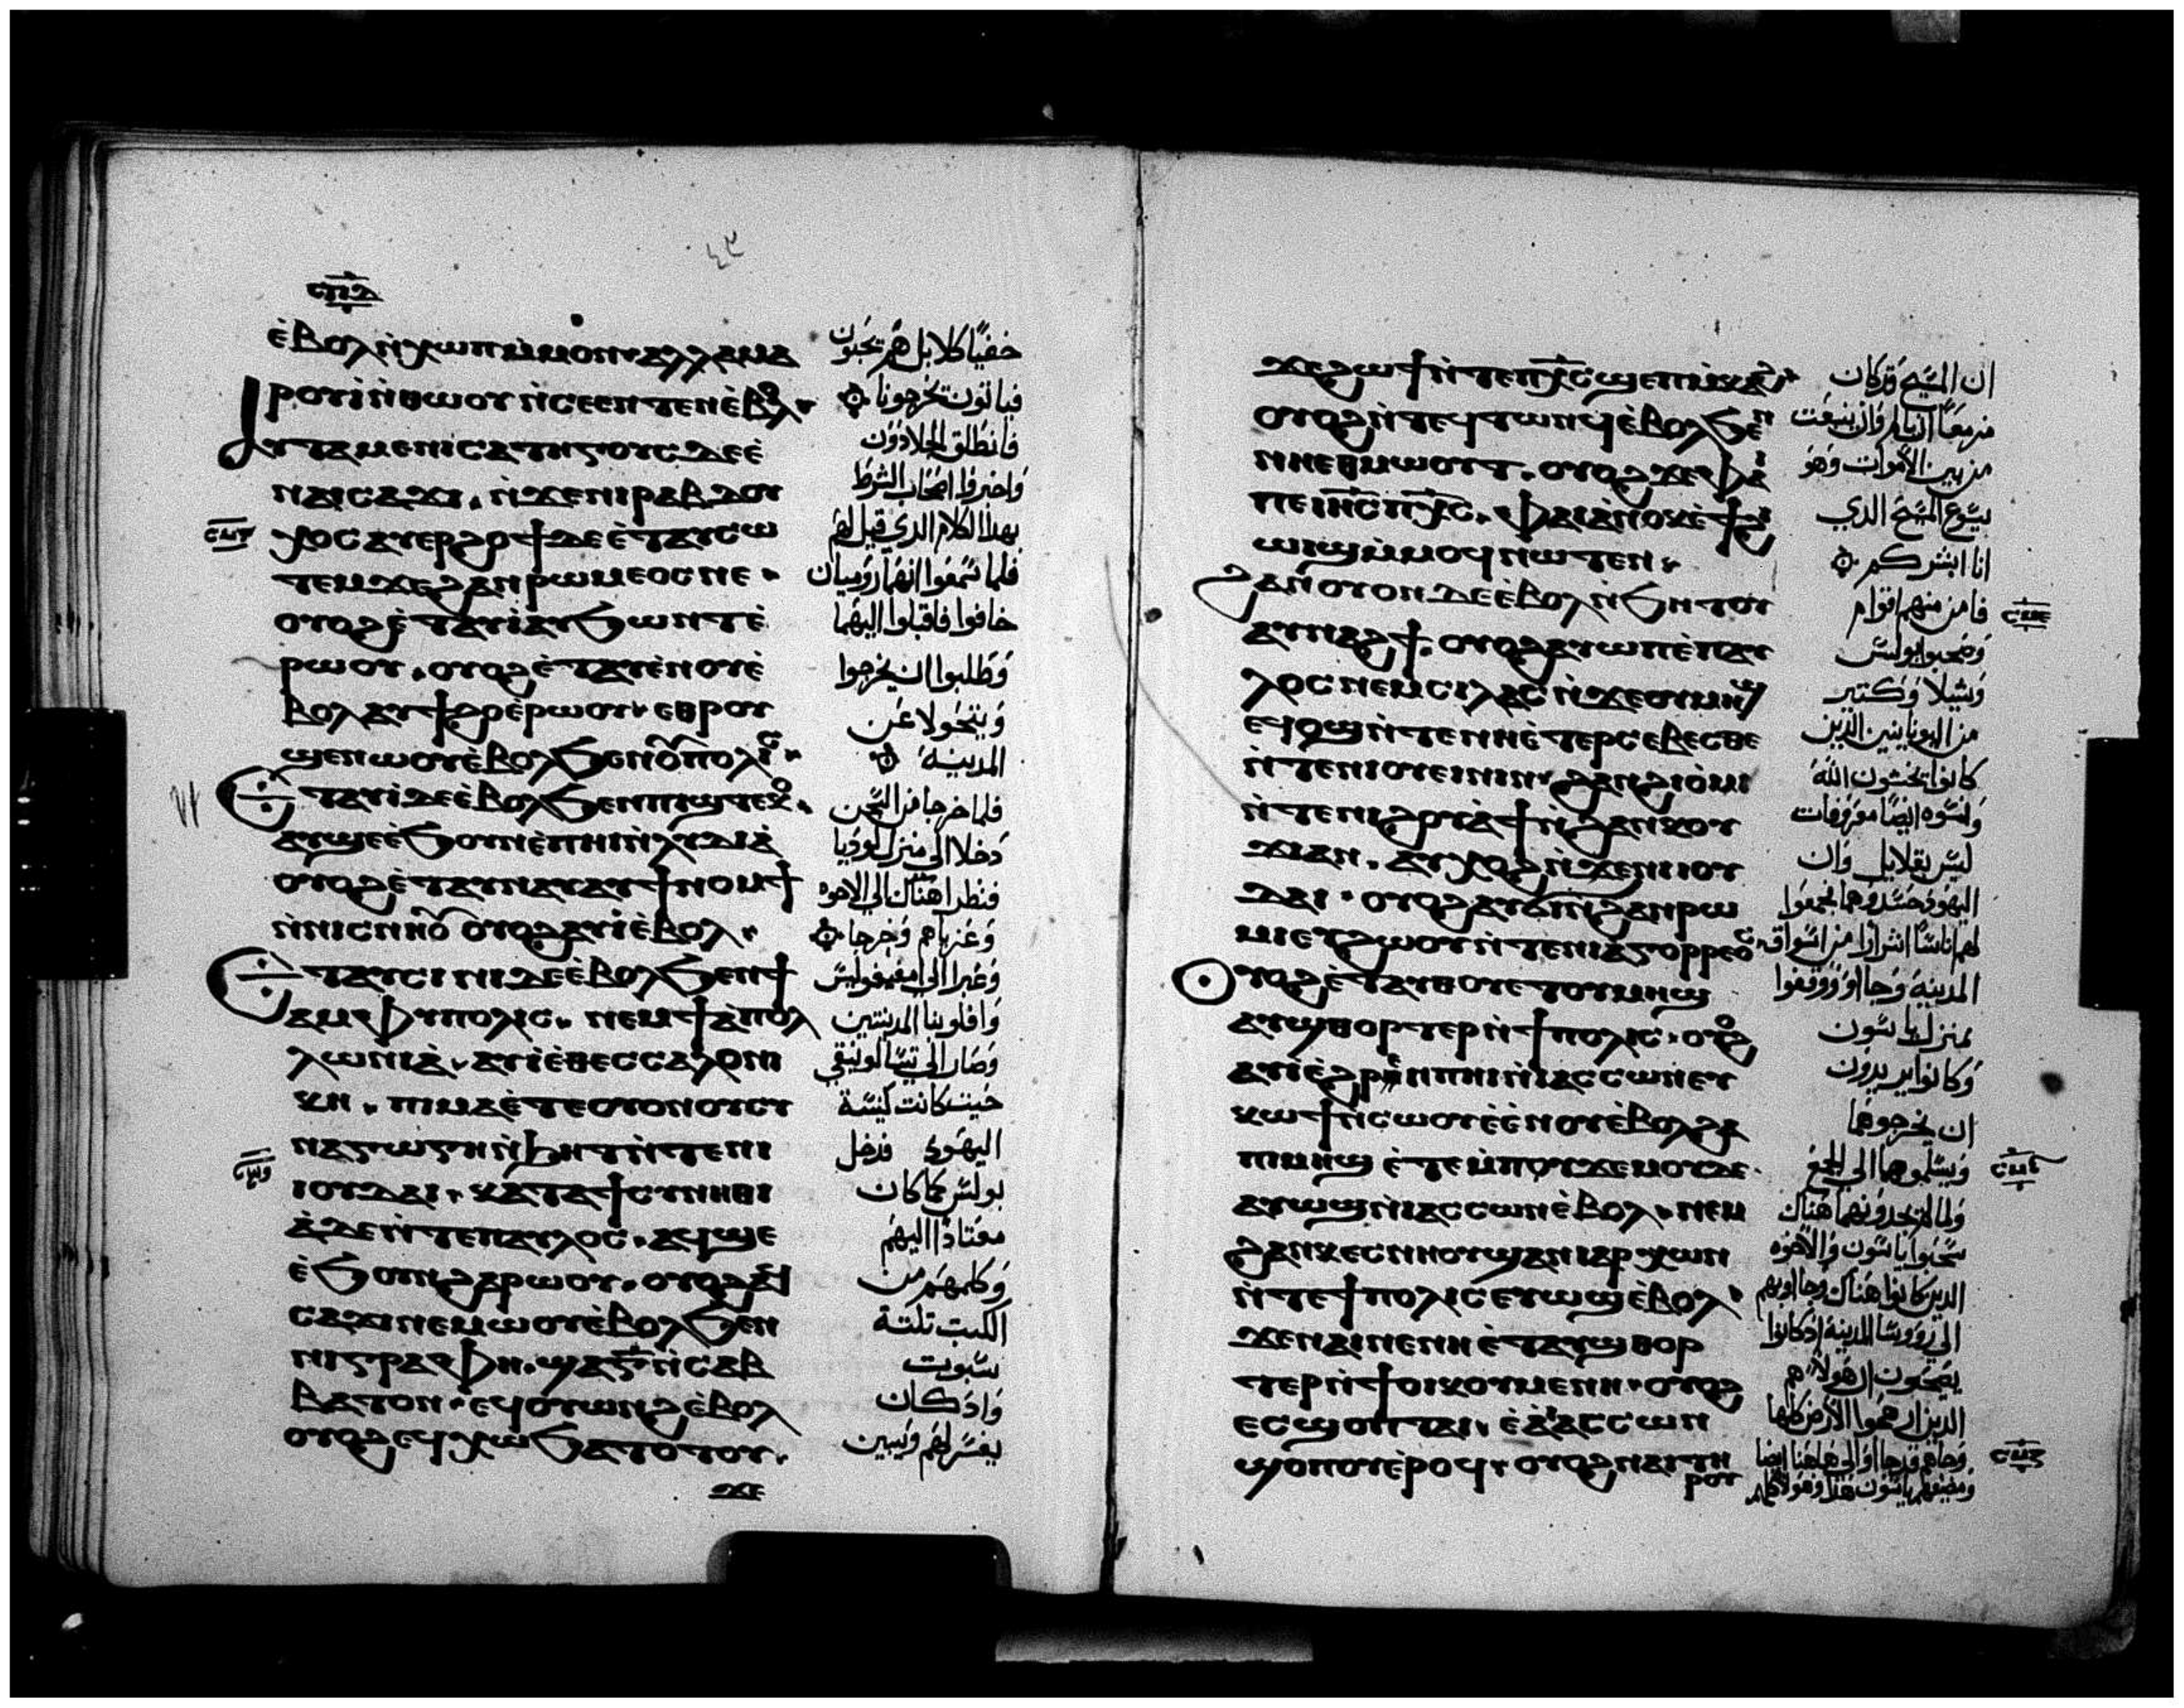 ⲉ̀ⲃⲟⲗ ⲛ̀ⲭⲱⲡ ⲙ̀ⲙⲟⲛ· ⲁⲗⲗⲁ ⲙⲁ
ⲣⲟⲩⲓ̀ ⲛ̀ⲑⲱⲟⲩ ⲛ̀ⲥⲉⲉⲛⲧⲉⲛ ⲉ̀ⲃⲟⲗ·
ⲁⲩⲧⲁⲙⲉ ⲛⲓⲥⲁⲧⲏⲅⲟⲩⲥ ⲇⲉ ⲉ̀
ⲛⲁⲓⲥⲁϫⲓ· ⲛ̀ϫⲉ ⲛⲓⲣⲁⲃⲇⲟⲩ
ⲭⲟⲥ ⲁⲩⲉⲣϩⲟϯ ⲇⲉ ⲉ̀ⲧⲁⲩⲥⲱ
ⲧⲉⲙ ϫⲉ ϩⲁⲛⲣⲱⲙⲉⲟⲥ ⲛⲉ·
ⲟⲩⲟϩ ⲉ̀ⲧⲁⲩⲓ̀ ⲁⲩϧⲱⲛⲧ ⲉ̀
ⲣⲱⲟⲩ· ⲟⲩⲟϩ ⲉ̀ⲧⲁⲩⲉ̀ⲛⲟⲩ ⲉ̀
ⲃⲟⲗ ⲁⲩϯϩⲟ ⲉ̀ⲣⲱⲟⲩ· ⲉⲑⲣⲟⲩ
ϣⲉⲛⲱⲟⲩ ⲉ̀ⲃⲟⲗϧⲉⲛ ϯⲡⲟⲗⲓⲥ·
ⲉⲧⲁⲩⲓ̀ ⲇⲉ ⲉ̀ⲃⲟⲗϧⲉⲛ ⲡⲓϣⲧⲉⲕⲟ·
ⲁⲩϣⲉ ⲉ̀ϧⲟⲩⲛ ⲉ̀ⲡⲏⲓ ⲛ̀ⲗⲩⲇⲓⲁ̀
ⲟⲩⲟϩ ⲉ̀ⲧⲁⲩⲛⲁⲩ ⲁⲩϯⲛⲟⲙϯ
ⲛ̀ⲛⲓⲥⲛⲏⲟⲩ ⲟⲩⲟϩ ⲁⲩⲓ̀ ⲉ̀ⲃⲟⲗ·
ⲉⲧⲁⲩⲥⲓⲛⲓ ⲇⲉ ⲉ̀ⲃⲟⲗϧⲉⲛ ϯ
ⲁⲙⲫⲩⲡⲟⲗⲓⲥ· ⲛⲉⲙ ϯⲁ̀ⲡⲟⲗ
ⲗⲱⲛⲓⲁ̀· ⲁⲩⲓ̀ ⲉ̀ⲑⲉⲥⲥⲁⲗⲟⲛⲓ
ⲕⲏ· ⲡⲓⲙⲁ ⲉ̀ⲧⲉ ⲟⲩⲟⲛ ⲟⲩⲥⲩ
ⲛⲁⲅⲱⲅⲏ ⲛ̀ϧⲏⲧ ⲛ̀ⲧⲉ ⲛⲓ
ⲓⲟⲩⲇⲁⲓ· ⲕⲁⲧⲁ ϯⲥⲩⲛⲏⲑⲓ
ⲁ̀ ⲇⲉ ⲛ̀ⲧⲉ ⲡⲁⲩⲗⲟⲥ· ⲁϥϣⲉ
ⲉ̀ϧⲟⲩⲛ ϩⲁⲣⲱⲟⲩ· ⲟⲩⲟϩ ⲁϥ
ⲥⲁϫⲓ ⲛⲉⲙⲱⲟⲩ ⲉ̀ⲃⲟⲗϧⲉⲛ
ⲛⲓⲅⲣⲁⲫⲏ· ϣⲁ ⲅ̅ ⲛ̀ⲥⲁⲃ
ⲃⲁⲧⲟⲛ· ⲉϥⲟⲩⲱⲛϩ ⲉ̀ⲃⲟⲗ
ⲟⲩⲟϩ ⲉϥⲭⲱ ϧⲁⲧⲟⲧⲟⲩ·
ϫⲉ
خفيًا كلا بل هم يجبون
فياتون يخرجونا
فانطلق الجلادون
واخبروا اصحاب الشرط
بهذا الكلام الذي قيل لهم
فلما سمعوا انهما روميان
خافوا فاقبلوا اليهما
وطلبوا ان يخرجوا
ويتحولا عن
المدينة
فلما خرجا من السجن
دخلا الى منزل لوديا
فنظرا هناك الي الاخوه
وعزياهم وخرجا
وعبرا الى امفيفوليس
وافلونيا المدينتين
وصارا الي تسالونيقي
حيث كانت كنسة
اليهود فدخل
بولس كما كان
معتادًا اليهم
وكلمهم من
الكتب تلتة
سبوت
واذ كان
يفسر لهم ويبين
ϫⲉ ϩⲱϯ ⲛ̀ⲧⲉ ⲡⲭ̅ⲥ̅ ϣⲉⲡⲙ̀ⲕⲁϩ·
ⲟⲩⲟϩ ⲛ̀ⲧⲉϥⲧⲱⲛϥ ⲉ̀ⲃⲟⲗϧⲉⲛ
ⲛⲏⲉⲑⲙⲱⲟⲩⲧ· ⲟⲩⲟϩ ϫⲉ ⲫⲁⲓ
ⲡⲉ ⲓⲏ̅ⲥ̅ ⲡⲭ̅ⲥ̅· ⲫⲁⲓ ⲁ̀ⲛⲟⲕ ⲉ̀ϯϩⲓ
ⲱⲓϣ ⲙ̀ⲙⲟϥ ⲛⲱⲧⲉⲛ·
ϩⲁⲛⲟⲩⲟⲛ ⲇⲉ ⲉ̀ⲃⲟⲗ ⲛ̀ϧⲏⲧⲟⲩ
ⲁⲩⲛⲁϩϯ· ⲟⲩⲟϩ ⲁⲩⲱⲡ ⲉ̀ⲡⲁⲩ
ⲗⲟⲥ ⲛⲉⲙ ⲥⲓⲗⲁⲥ ⲛ̀ϫⲉ ⲟⲩⲙⲏϣ
ⲉϥⲟϣ ⲛ̀ⲧⲉ ⲛⲏⲉ̀ⲧⲉⲣⲥⲉⲃⲉⲥⲑⲉ
ⲛ̀ⲧⲉ ⲛⲓⲟⲩⲉⲓⲛⲓⲛ· ϩⲁⲛϩⲓⲟ̀ⲙⲓ
ⲛ̀ⲧⲉ ⲛⲓϩⲟⲩⲁ̀ϯ ⲛ̀ϩⲁⲛⲕⲟⲩ
ϫⲓ ⲁⲛ· ⲁⲩⲭⲟϩ ⲛ̀ϫⲉ ⲛⲓⲓⲟⲩ
ⲇⲁⲓ· ⲟⲩⲟϩ ⲁⲩϭⲓ ⲛ̀ϩⲁⲛⲣⲱ
ⲙⲓ ⲉⲩϩⲱⲟⲩ ⲛ̀ⲧⲉ ⲛⲓⲁⲅⲟⲣⲣⲉⲟⲥ·
ⲟⲩⲟϩ ⲉ̀ⲧⲁⲩⲑⲟⲩⲉⲧ ⲟⲩⲙⲏϣ
ⲁⲩϣⲑⲟⲣⲧⲉⲣ ⲛ̀ϯⲡⲟⲗⲓⲥ· ⲟⲩⲟϩ
ⲁⲩⲓ̀ ⲉ̀ϩⲣⲏⲓ ⲉ̀ⲡⲏⲓ ⲛ̀ⲓⲁⲥⲥⲱⲛ ⲉⲩ
ⲕⲱϯ ⲛ̀ⲥⲱⲟⲩ ⲉ̀ⲉ̀ⲛⲟⲩ ⲉ̀ⲃⲟⲗ ϩⲁ
ⲡⲓⲙⲏϣ ⲉ̀ⲧⲉ ⲙ̀ⲡⲟⲩϫⲉⲙⲟⲩ ⲇⲉ·
ⲁⲩⲱϣ ⲛ̀ⲓⲁⲥⲥⲱⲛ ⲉ̀ⲃⲟⲗ· ⲛⲉⲙ
ϩⲁⲛⲕⲉⲥⲛⲏⲟⲩ ϣⲁ ⲛⲓⲁⲣⲭⲱⲛ
ⲛ̀ⲧⲉ ϯⲡⲟⲗⲓⲥ ⲉⲩⲱϣ ⲉ̀ⲃⲟⲗ·
ϫⲉ ⲛⲁⲓ ⲛⲉ ⲛⲏⲉ̀ⲧⲁⲩϣⲑⲟⲣ
ⲧⲉⲣ ⲛ̀ϯⲟⲓⲕⲟⲩⲙⲉⲛⲏ· ⲟⲩⲟϩ
ⲥⲉϣⲟⲡ ⲧⲁⲓ· ⲉ̀ⲁ̀ ⲓⲁⲥⲥⲱⲛ
ϣⲟⲡⲟⲩ ⲉ̀ⲣⲟϥ· ⲟⲩⲟϩ ⲛⲁⲓ ⲧⲏ
ⲣⲟⲩ
ان المسيح قد كان
مزمعًا ان يالم وان ينبعث
من بين الاموات وهو
يسوع المسيح الذي
انا ابشركم
فامن منهم اقوام
وصحبوا بولس
وشيلا وكتير
من اليونانيين الذين
كانوا يخشون الله
ونسوه ايضًا معروفات
ليس بقلايل وان
اليهود حسدوهما فجمعوا
لهم اناسًا اشرارًا من اسواق
المدينة وجااوا ووقفوا
بمنزل ياسون
وكانوا يريدون
ان يخرجوهما
ويسلموهما الي الجمع
ولما لم يجدونهما هناك
سحبوا ياسون والاخوه
الذين كانوا هناك وجااو بهم
الي رووسا المدينة اذ كانوا
يصيحون ان هولاء هم
الذين ارهجوا الارض كلها
وهاهم قد جااوا الي هاهنا ايضا
ومضيفهم ياسون هذا وهولا كلهم